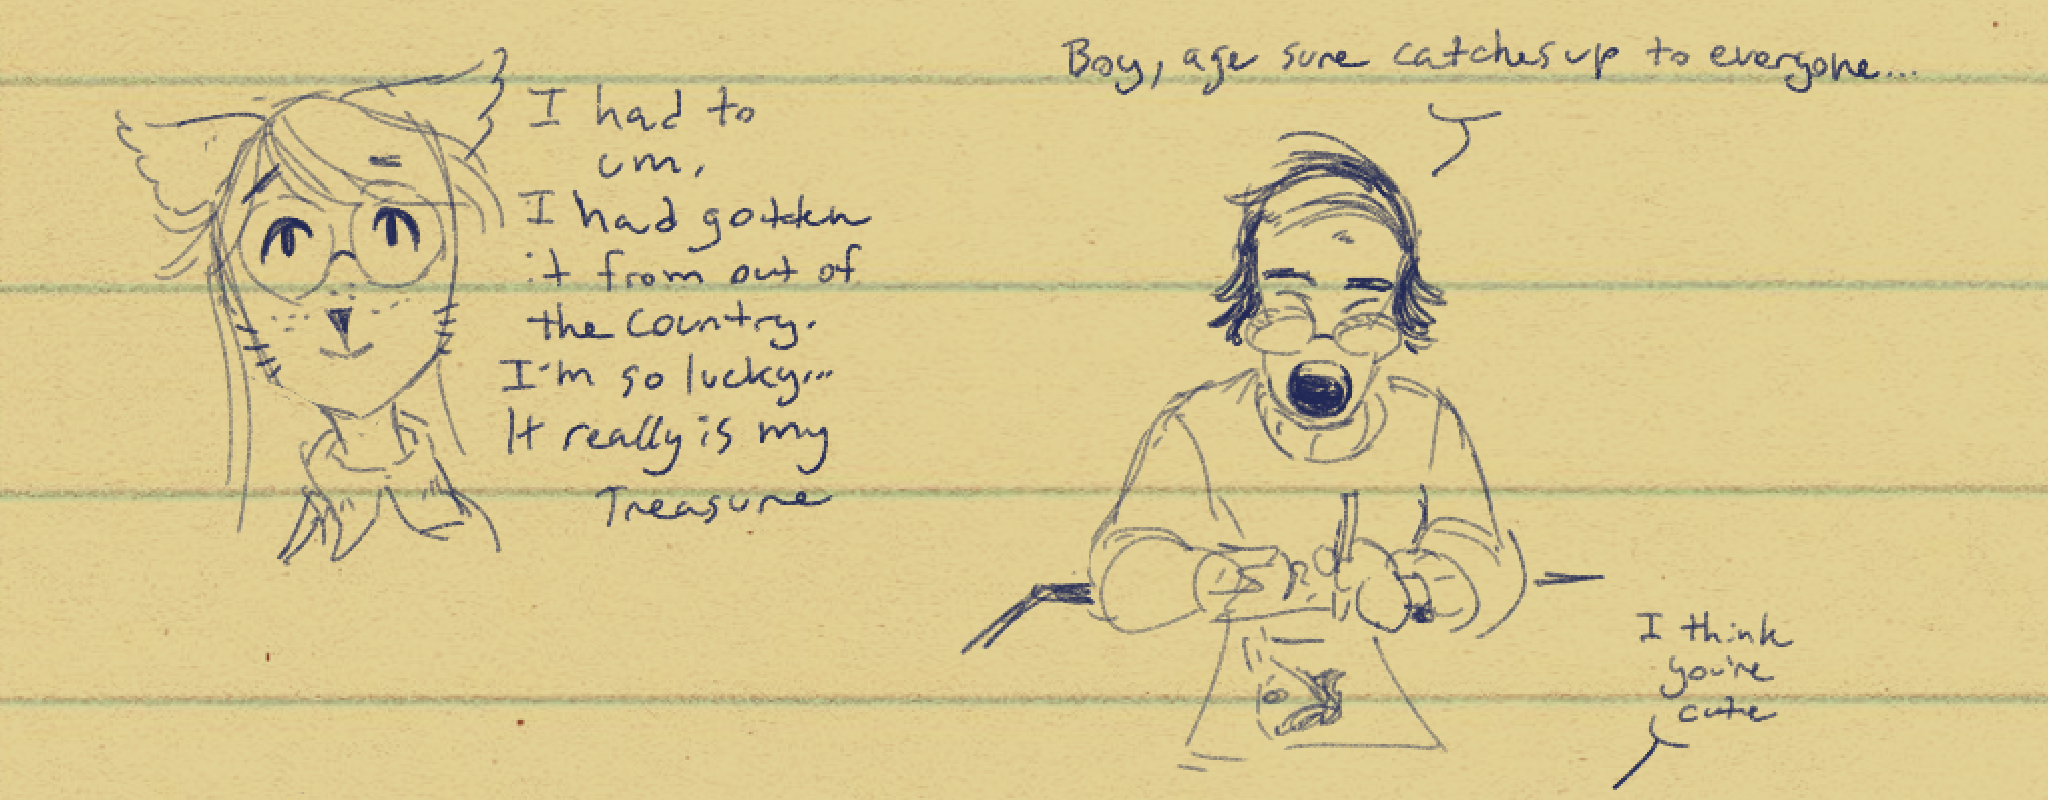 I had to
um,
I had gotten
it from out of
the country.
I'm so lucky...
It really is my
Treasure
Boy, age sure catches up to everyone...
I think
you're
cute